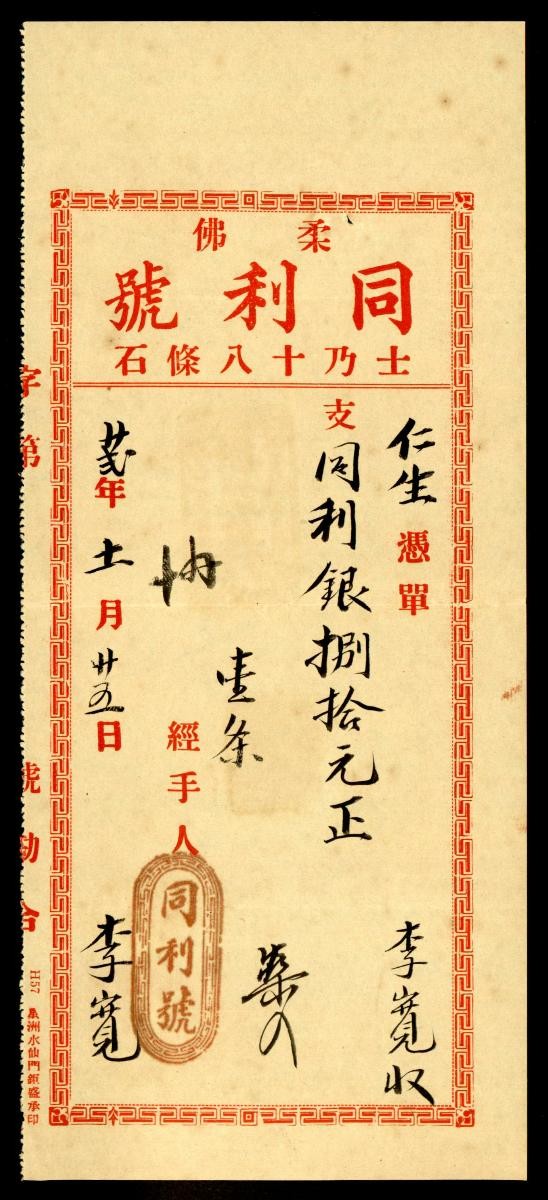 柔佛
同利號
士乃十八條石
仁生憑單
李寬收
支同利銀捌拾元正
壹条
經手人
同利號
弍年十一月廿五日
李寬
字第 號勘合
H57 星洲水仙門鉅盛承印